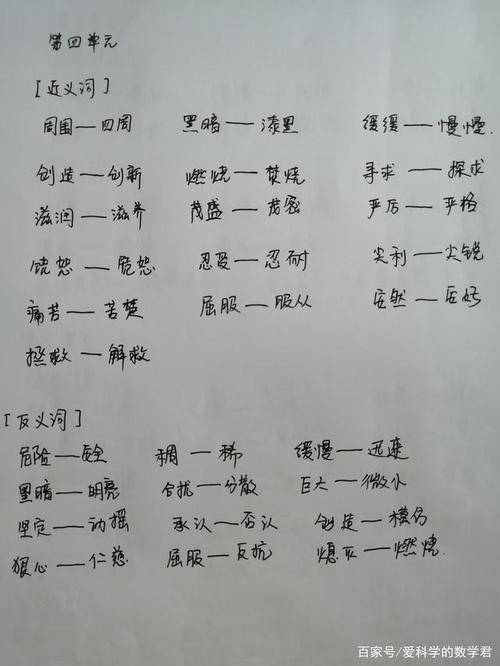 第四单元
[近义词]
周围—四周 黑暗—漆黑 缓缓—慢慢
创造—创新 燃烧—焚烧 寻求—探求
滋润—滋养 茂盛—茂密 严厉—严格
饶恕—宽恕 忍受—忍耐 尖利—尖锐
痛苦—苦楚 屈服—服从 安然—安好
拯救—解救
[反义词]
危险—安全 稠—稀 缓慢—迅速
黑暗—明亮 合拢—分散 巨大—微小
坚定—动摇 承认—否认 创造—模仿
狠心—仁慈 屈服—反抗 熄灭—燃烧
百家号/爱科学的数学君